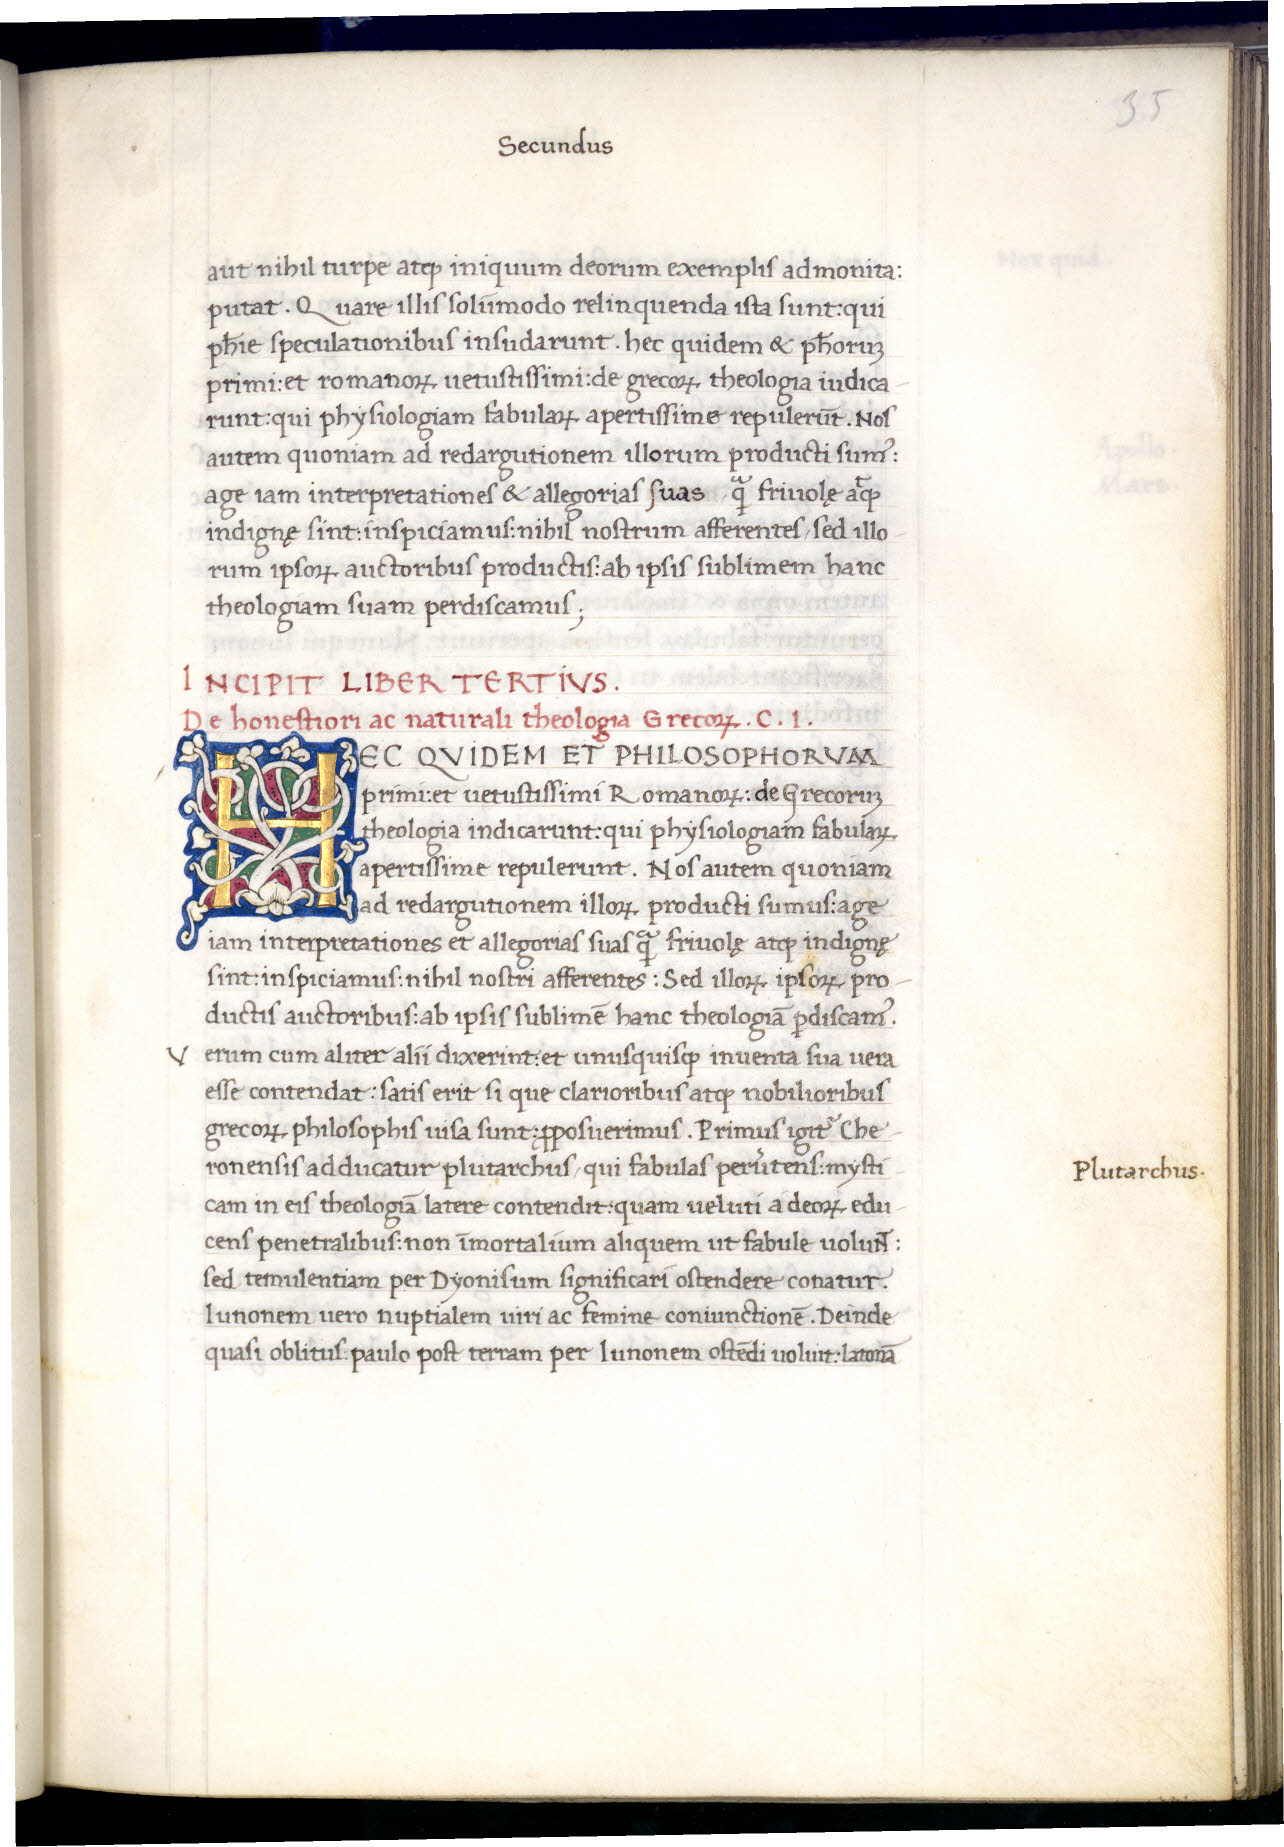 35
Secundus
aut nihil turpe atqꝫ iniquum deorum exemplis admonita:
putat. Quare illis solūmodo relinquenda ista sunt: qui
phīe speculationibus insudarunt. hec quidem & phoruꝫ
primi: et romanoꝝ uetustissimi: de grecoꝝ theologia iudica-
runt: qui physiologiam fabulaꝝ apertissime repulerūt. Nos
autem quoniam ad redargutionem illorum producti sumꝰ:
age iam interpretationes & allegorias suas, q̃ friuolę atqꝫ
indignę sint: inspiciamus: nihil nostrum afferentes, sed illo-
rum ipsoꝝ auctoribus productis: ab ipsis sublimem hanc
theologiam suam perdiscamus;
INCIPIT LIBER TERTIVS.
De honestiori ac naturali theologia Grecoꝝ. C. I.
HEC QVIDEM ET PHILOSOPHORVM
primi: et uetustissimi Romanoꝝ: de Grecoruꝫ
theologia indicarunt: qui physiologiam fabulaꝝ
apertissime repulerunt. Nos autem quoniam
ad redargutionem illoꝝ producti sumus: age
iam interpretationes et allegorias suas q̃ friuolę atqꝫ indignę
sint: inspiciamus: nihil nostri afferentes: Sed illoꝝ ipsoꝝ pro-
ductis auctoribus: ab ipsis sublimē hanc theologiā ꝑdiscamꝰ.
Verum cum aliter alii dixerint: et unusquisqꝫ inuenta sua uera
esse contendat: satis erit si que clarioribus atqꝫ nobilioribus
grecoꝝ philosophis uisa sunt: ꝓposuerimus. Primus igitᷣ Che-
ronensis adducatur plutarchus, qui fabulas peruertens: mysti-
cam in eis theologiā latere contendit: quam ueluti a deoꝝ edu-
cens penetralibus: non īmortalium aliquem ut fabule uolunt:
sed temulentiam per Dyonisum significari ostendere conatur.
Iunonem uero nuptialem uiri ac femine coniunctionē. Deinde
quasi oblitus: paulo post terram per Iunonem ostēdi uoluit: latonā
Plutarchus.